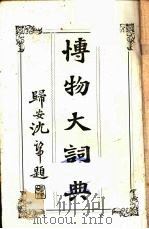 博物大詞典
歸安沈□題